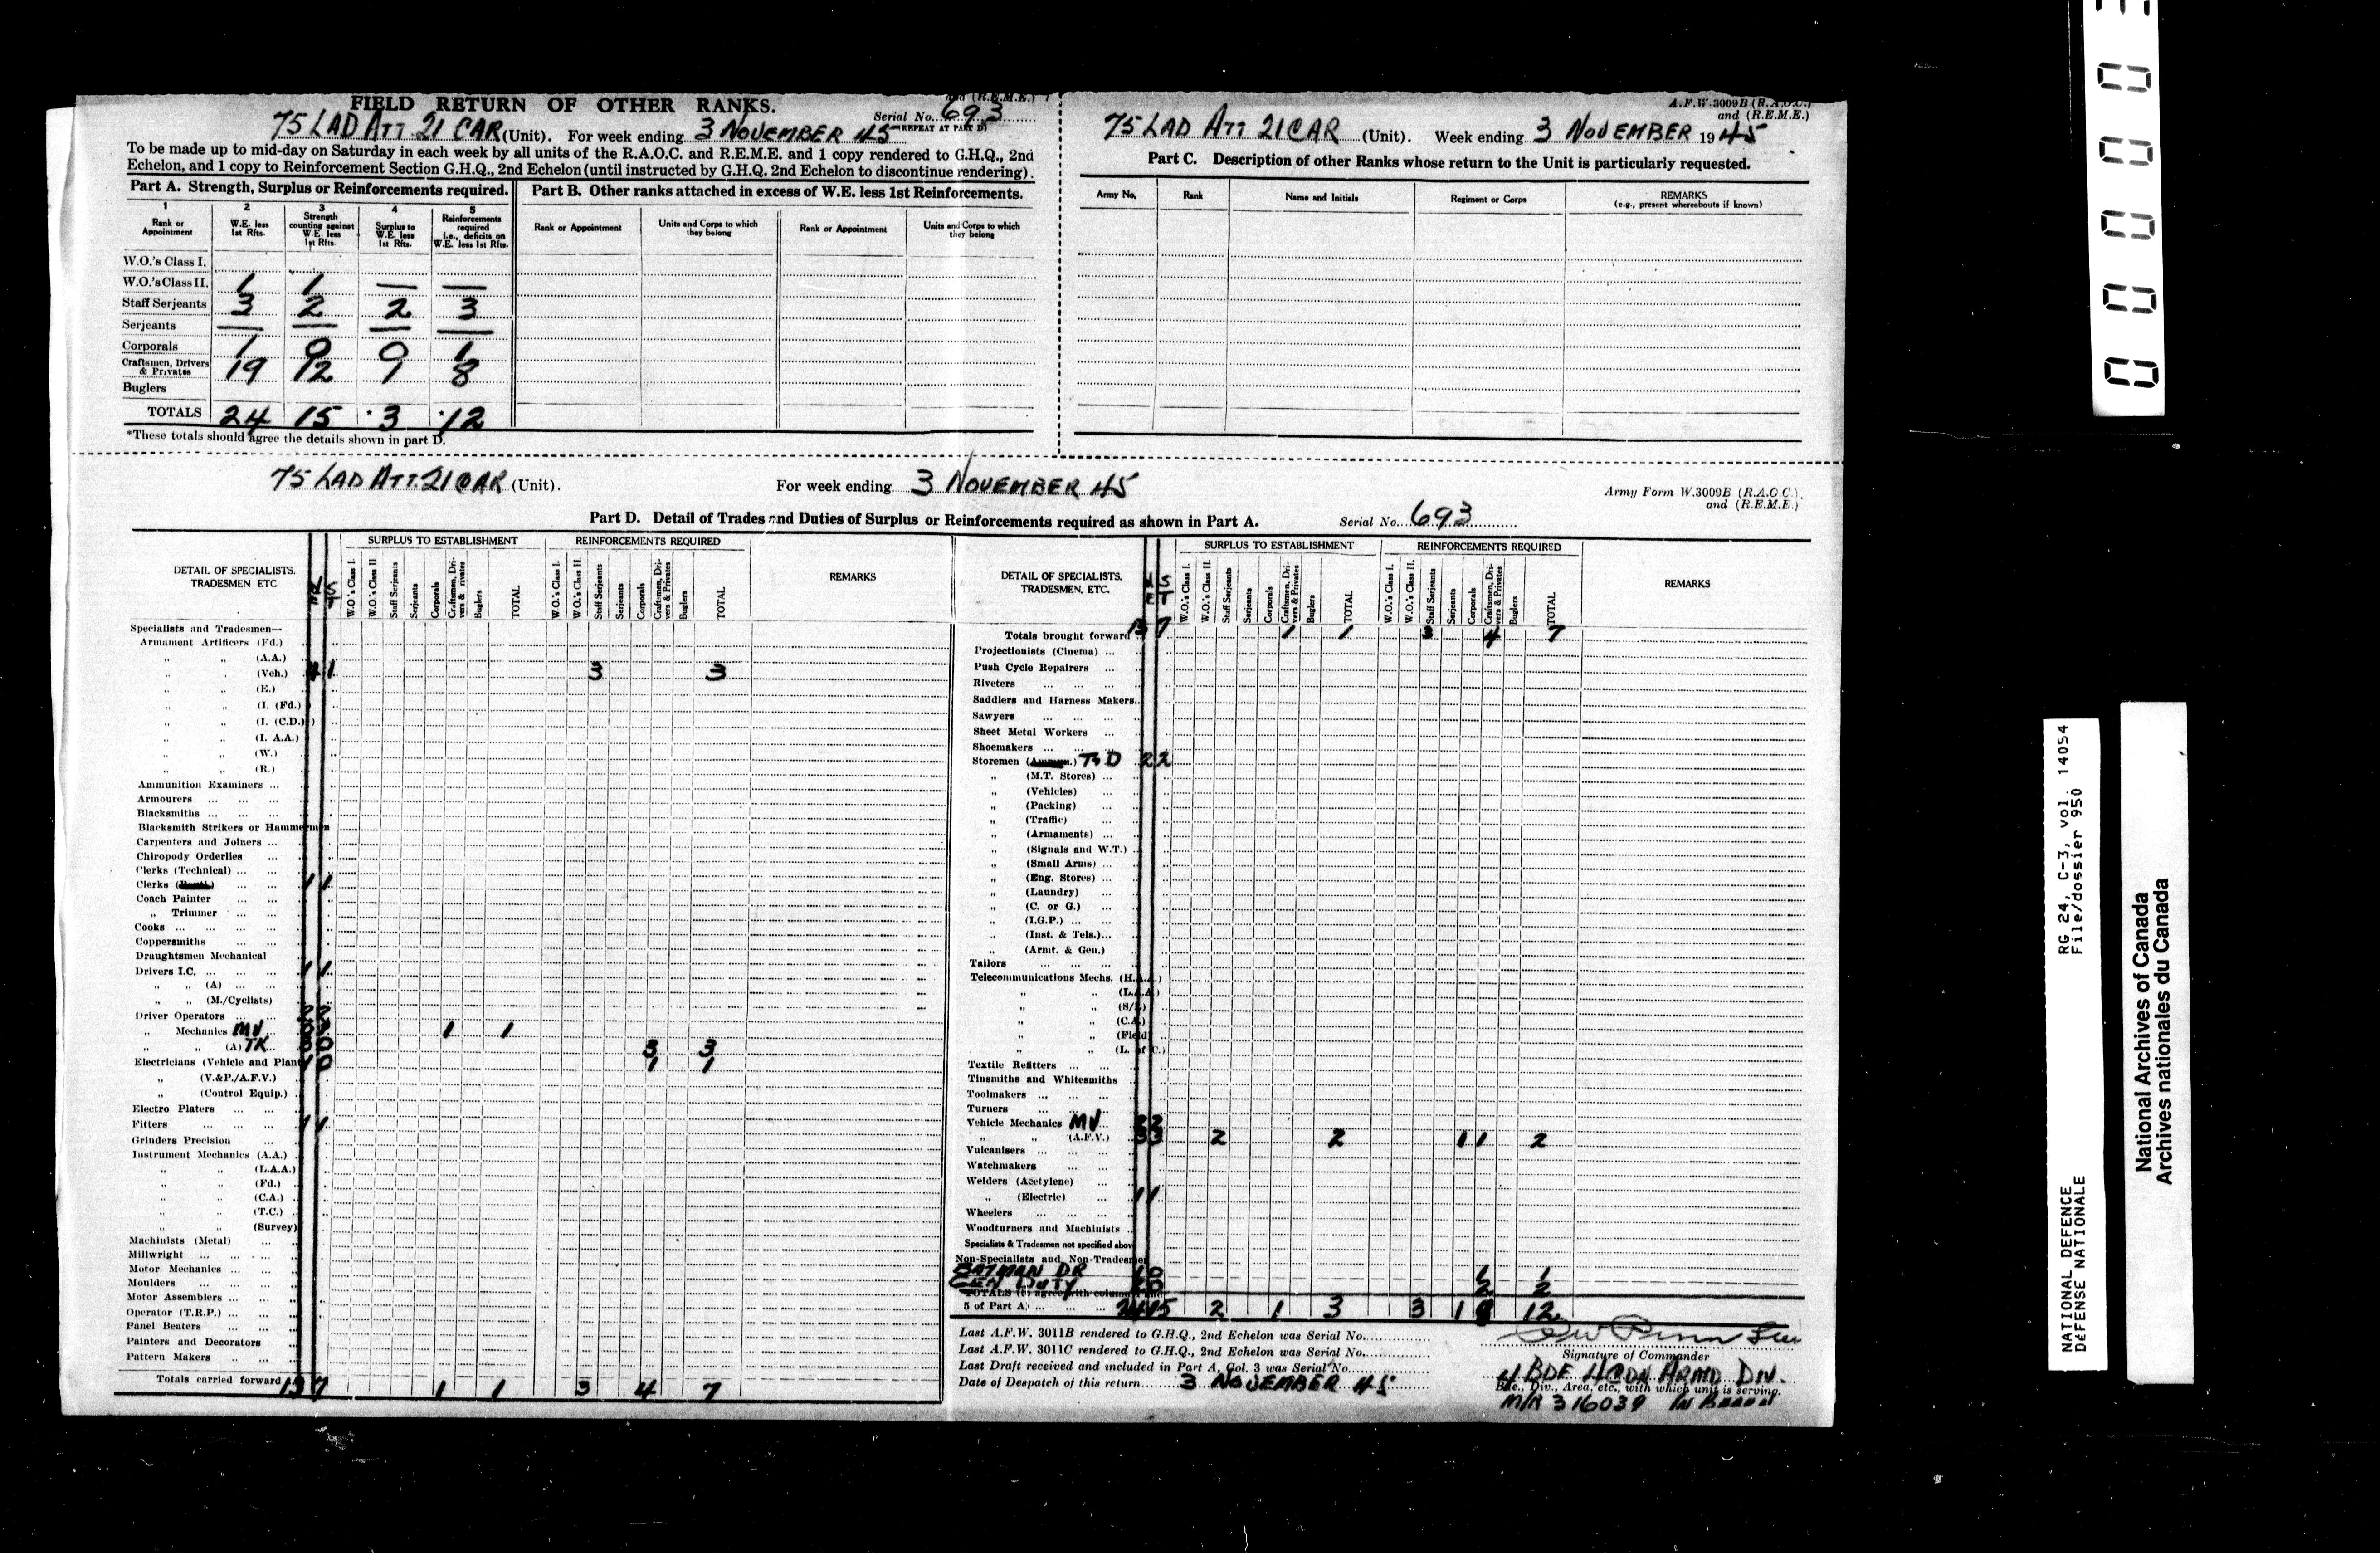 FIELD RETURN OF OTHER RANKS.
and (R.E.M.E.)
Serial No. 693
(REPEAT AT PART D)
75 LAD ATT. 21 CAR (Unit). For week ending 3 NOVEMBER 45
To be made up to mid-day on Saturday in each week by all units of the R.A.O.C. and R.E.M.E. and 1 copy rendered to G.H.Q., 2nd
Echelon, and 1 copy to Reinforcement Section G.H.Q., 2nd Echelon (until instructed by G.H.Q. 2nd Echelon to discontinue rendering).
Part A. Strength, Surplus or Reinforcements required.
1 2 3 4 5
Rank or Appointment
W.E. less 1st Rfts.
Strength counting against W.E. less 1st Rfts.
Surplus to W.E. less 1st Rfts.
Reinforcements required i.e., deficits on W.E. less 1st Rfts.
W.O.'s Class I.
W.O.'s Class II. 1 1 — —
Staff Serjeants 3 2 2 3
Serjeants — — — —
Corporals 1 0 0 1
Craftsmen, Drivers & Privates 19 12 1 8
Buglers
TOTALS 24 15 *3 *12
*These totals should agree the details shown in part D.
Part B. Other ranks attached in excess of W.E. less 1st Reinforcements.
Rank or Appointment
Units and Corps to which they belong
Rank or Appointment
Units and Corps to which they belong
A.F.W. 3009B (R.A.O.C.)
and (R.E.M.E.)
75 LAD ATT 21 CAR (Unit). Week ending 3 NOVEMBER 1945
Part C. Description of other Ranks whose return to the Unit is particularly requested.
Army No. Rank Name and Initials Regiment or Corps REMARKS
(e.g., present whereabouts if known)
75 LAD ATT. 21 CAR (Unit). For week ending 3 NOVEMBER 45
Army Form W.3009B (R.A.O.C.)
and (R.E.M.E.)
Part D. Detail of Trades and Duties of Surplus or Reinforcements required as shown in Part A. Serial No. 693
DETAIL OF SPECIALISTS, TRADESMEN ETC
WE
ST
SURPLUS TO ESTABLISHMENT
W.O.'s Class I.
W.O.'s Class II
Staff Serjeants
Serjeants
Corporals
Craftsmen, Drivers & Privates
Buglers
TOTAL
REINFORCEMENTS REQUIRED
W.O.'s Class I.
W.O.'s Class II.
Staff Serjeants
Serjeants
Corporals
Craftsmen, Drivers & Privates
Buglers
TOTAL
REMARKS
Specialists and Tradesmen—
Armament Artificers (Fd.)
„ „ (A.A.)
„ „ (Veh.) 4 1 3 3
„ „ (E.)
„ „ (I. (Fd.)
„ „ (I. (C.D.)
„ „ (I. A.A.)
„ „ (W.)
„ „ (R.)
Ammunition Examiners
Armourers
Blacksmiths
Blacksmith Strikers or Hammermen
Carpenters and Joiners
Chiropody Orderlies
Clerks (Technical)
Clerks 1 1
Coach Painter
„ Trimmer
Cooks
Coppersmiths
Draughtsmen Mechanical
Drivers I.C. 1 1
„ „ (A)
„ „ (M./Cyclists)
Driver Operators
„ Mechanics MV 1 1
„ „ (A) TK 3 0 3 3
Electricians (Vehicle and Plant) 1 0 1 1
„ (V.&P./A.F.V.)
„ (Control Equip.)
Electro Platers
Fitters 1 1
Grinders Precision
Instrument Mechanics (A.A.)
„ „ (L.A.A.)
„ „ (Fd.)
„ „ (C.A.)
„ „ (T.C.)
„ „ (Survey)
Machinists (Metal)
Millwright
Motor Mechanics
Moulders
Motor Assemblers
Operator (T.R.P.)
Panel Beaters
Painters and Decorators
Pattern Makers
Totals carried forward 13 7 1 1 3 4 7
DETAIL OF SPECIALISTS, TRADESMEN, ETC.
WE
ST
SURPLUS TO ESTABLISHMENT
W.O.'s Class I.
W.O.'s Class II.
Staff Serjeants
Serjeants
Corporals
Craftsmen, Drivers & Privates
Buglers
TOTAL
REINFORCEMENTS REQUIRED
W.O.'s Class I.
W.O.'s Class II.
Staff Serjeants
Serjeants
Corporals
Craftsmen, Drivers & Privates
Buglers
TOTAL
REMARKS
Totals brought forward 13 7 1 1 3 4 7
Projectionists (Cinema)
Push Cycle Repairers
Riveters
Saddlers and Harness Makers
Sawyers
Sheet Metal Workers
Shoemakers
Storemen 2 2
„ (M.T. Stores)
„ (Vehicles)
„ (Packing)
„ (Traffic)
„ (Armaments)
„ (Signals and W.T.)
„ (Small Arms)
„ (Eng. Stores)
„ (Laundry)
„ (C. or G.)
„ (I.G.P.)
„ (Inst. & Tels.)
„ (Armt. & Gen.)
Tailors
Telecommunications Mechs. (H.A.A.)
„ „ (L.A.A.)
„ „ (S/L)
„ „ (C.A.)
„ „ (Field)
„ „ (L. of C.)
Textile Refitters
Tinsmiths and Whitesmiths
Toolmakers
Turners
Vehicle Mechanics MV 2 2
„ „ (A.F.V.) 3 3 2 2 1 1 2
Vulcanisers
Watchmakers
Welders (Acetylene)
„ (Electric) 1 1
Wheelers
Woodturners and Machinists
Specialists & Tradesmen not specified above
Non-Specialists and Non-Tradesmen
BATMAN DR 1 0 1 1
GEN DUTY 2 0 2 2
TOTALS (to agree with column
5 of Part A) 24 15 2 1 3 3 1 8 12
Last A.F.W. 3011B rendered to G.H.Q., 2nd Echelon was Serial No.
Last A.F.W. 3011C rendered to G.H.Q., 2nd Echelon was Serial No.
Last Draft received and included in Part A, Col. 3 was Serial No.
Date of Despatch of this return 3 NOVEMBER 45
Signature of Commander
4 BDE 4 CDN ARMD DIV.
Bde., Div., Area, etc., with which unit is serving.
M/R 316039
NATIONAL DEFENCE RG 24, C-3, vol. 14054
DÉFENSE NATIONALE File/dossier 950
National Archives of Canada
Archives nationales du Canada